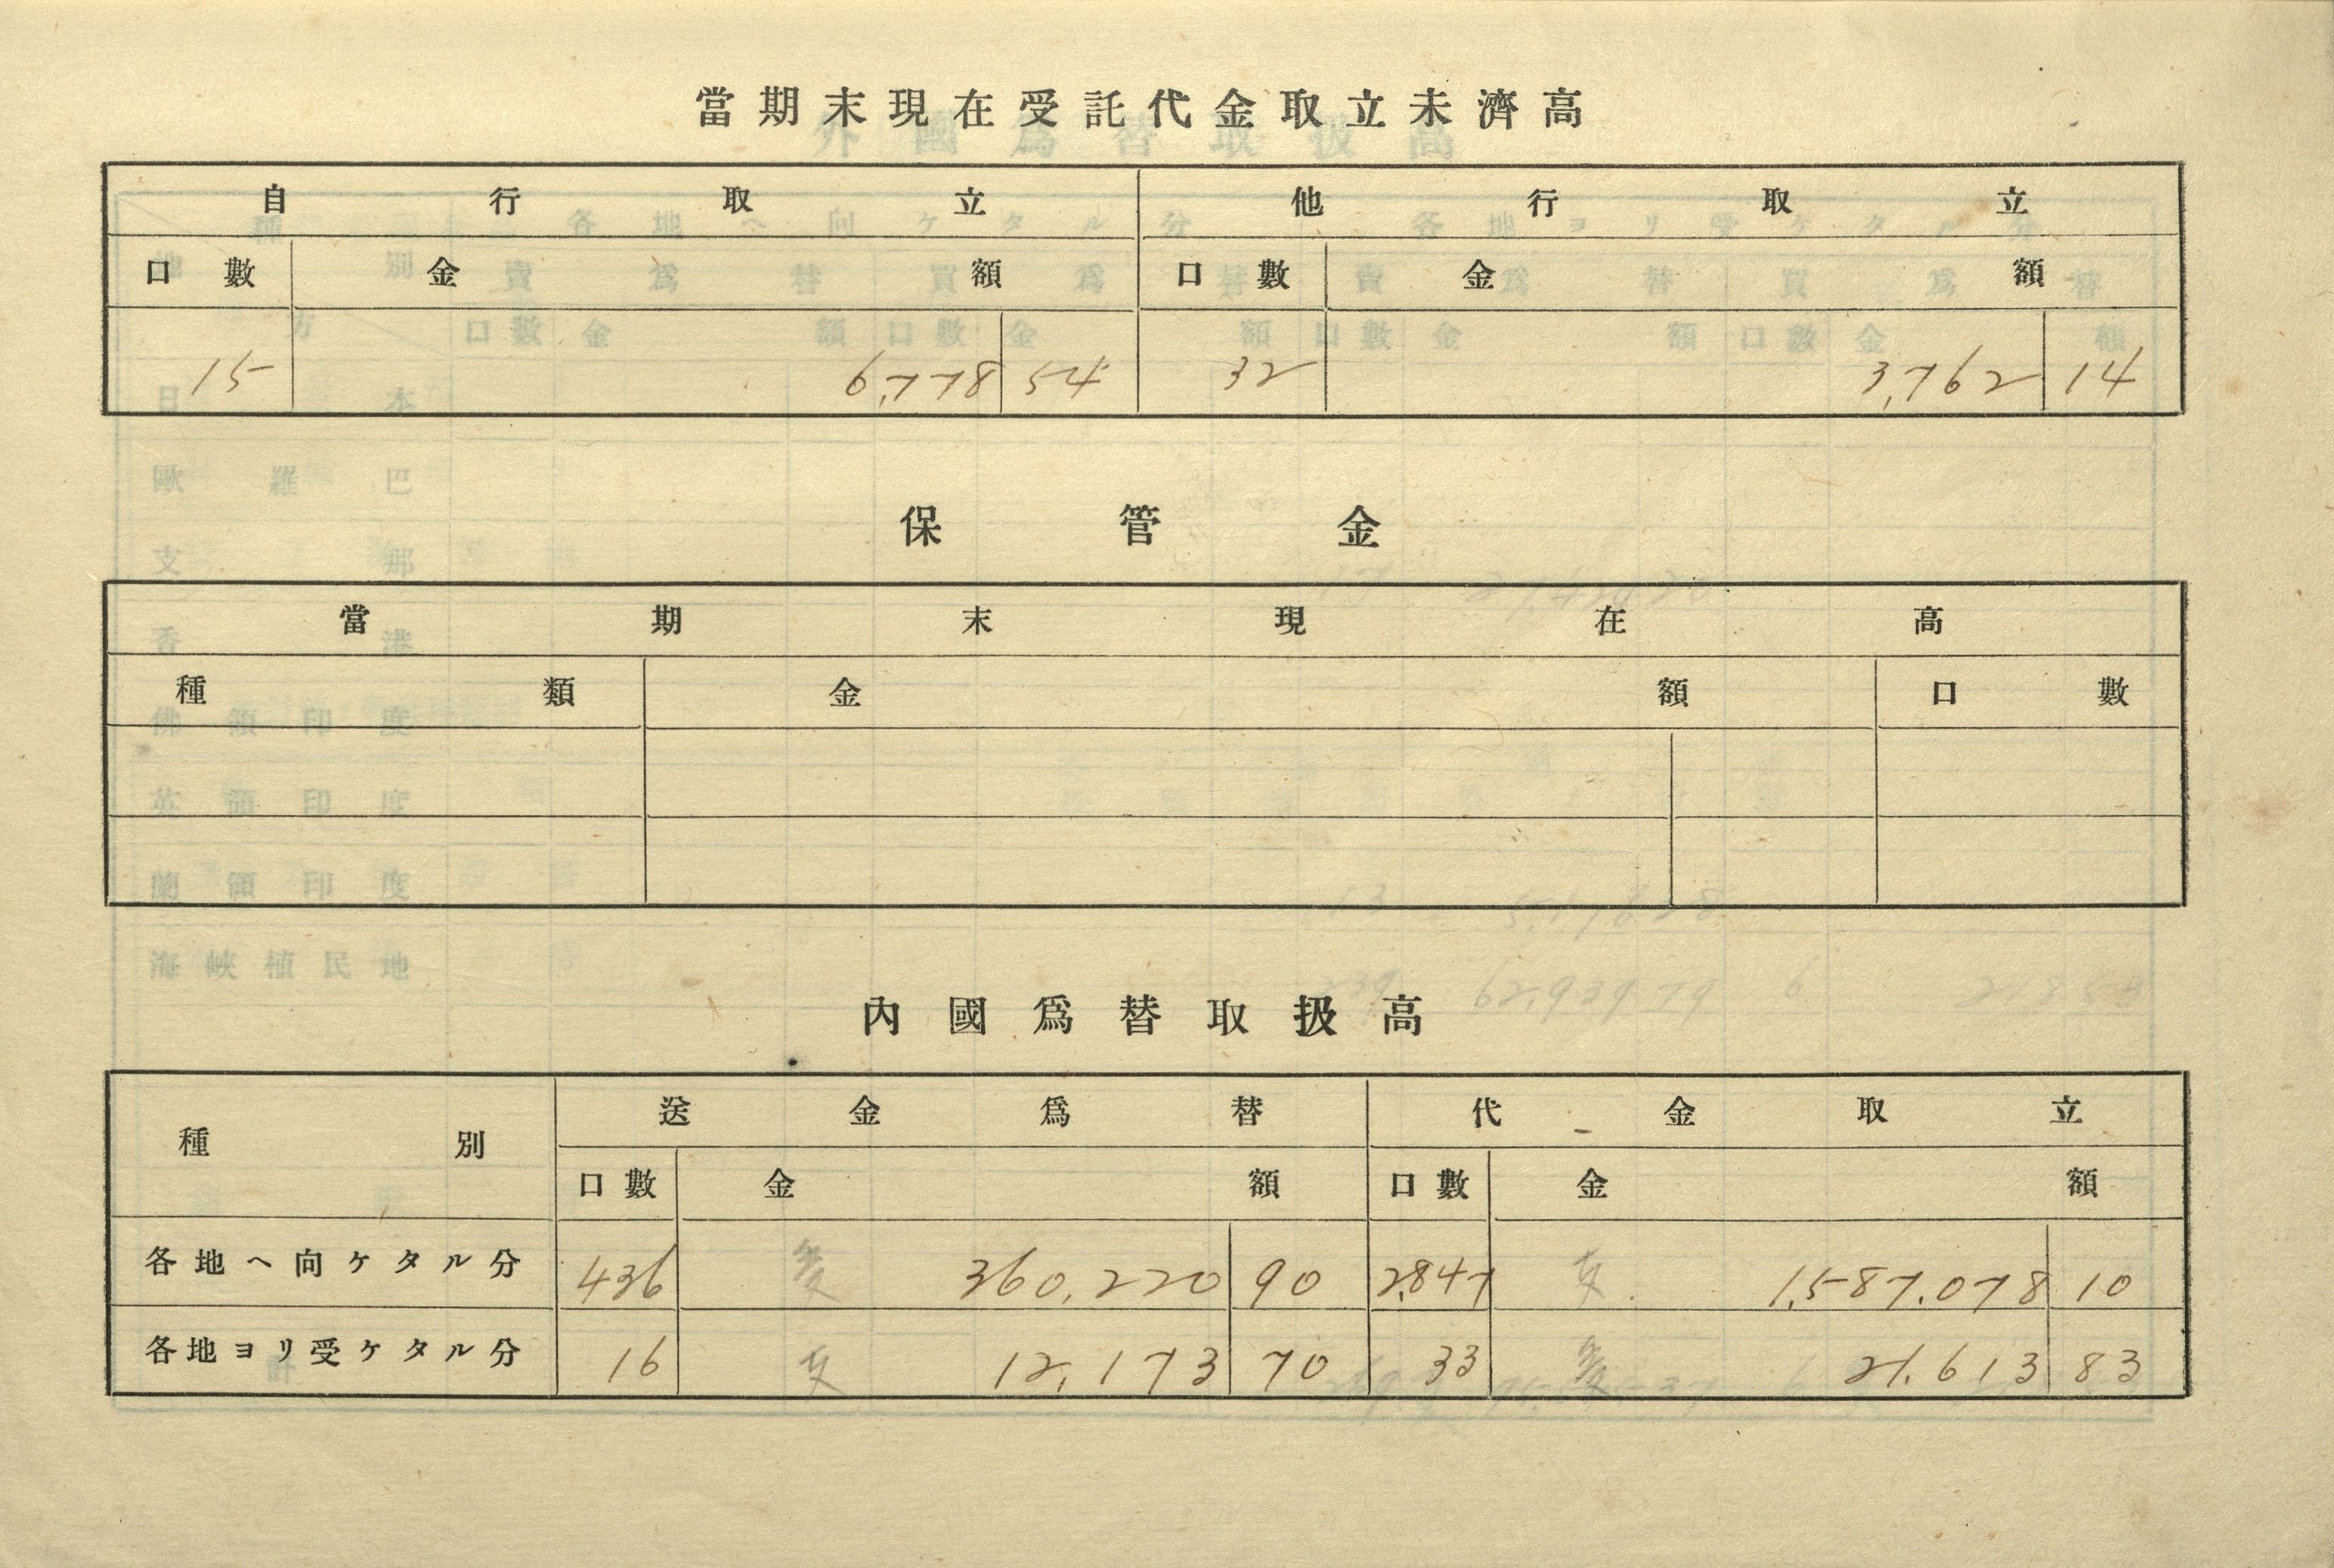 當期末現在受託代金取立未濟高
自行取立 他行取立
口數 金額 口數 金額
15 6,778 54 32 3,762 14
保管金
當期末現在高
種類 金額 口數
內國爲替取扱高
種別 送金爲替 代金取立
口數 金額 口數 金額
各地ヘ向ケタル分 436 360,220 90 2,847 1,587,078 10
各地ヨリ受ケタル分 16 12,173 70 33 21,613 83